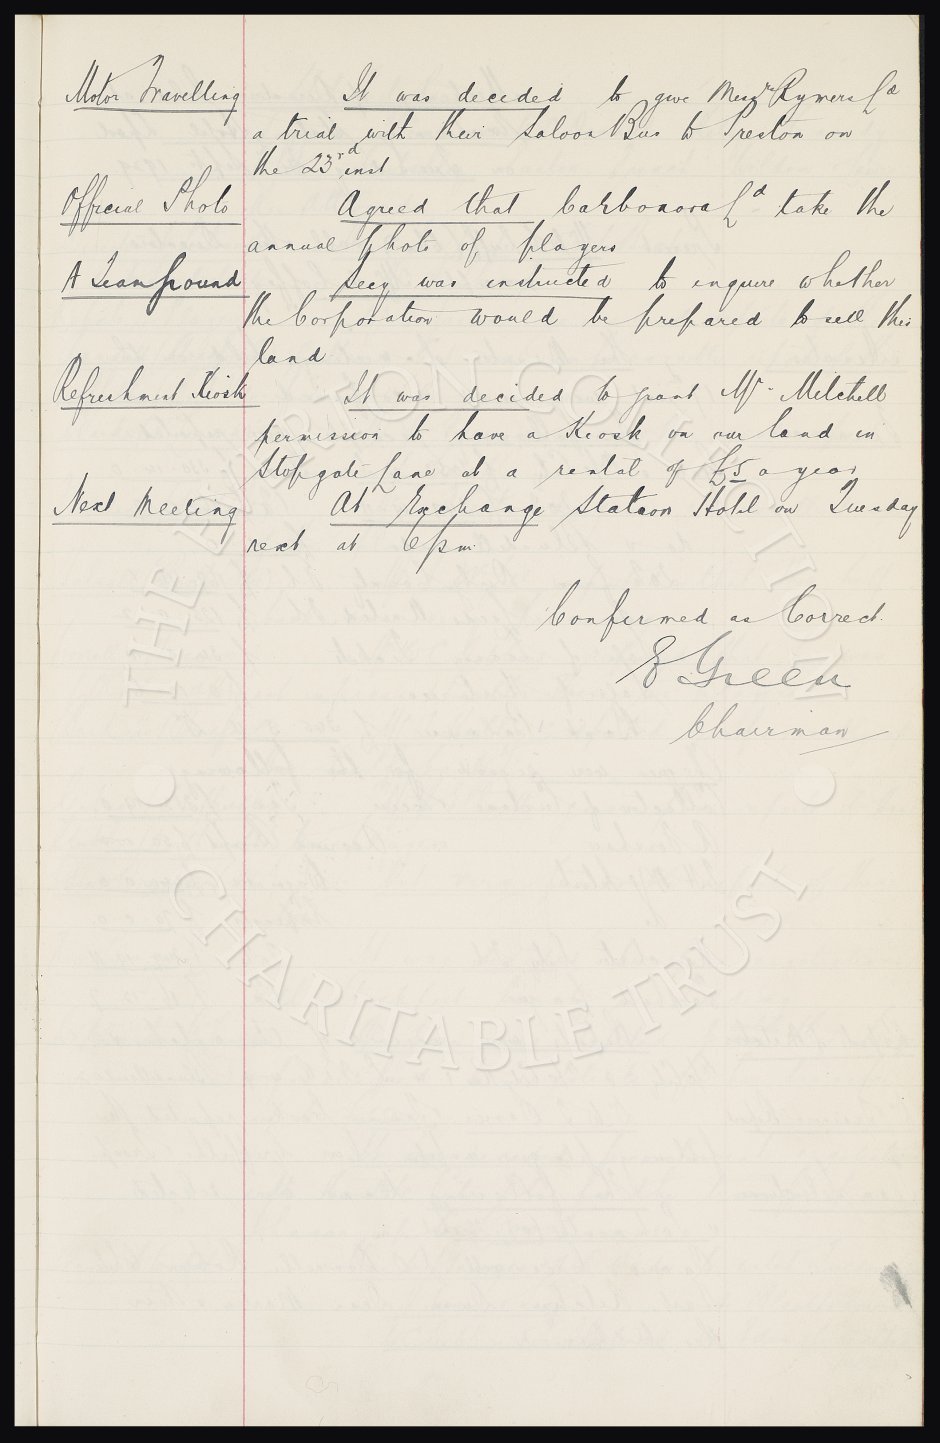 Motor Travelling It was decided to give Messrs Rymers Ld
a trial with their Saloon Bus to Preston on
the 23rd inst
Official Photo Agreed that Carbonora Ld take the
annual photo of players
A Team ground Secy was instructed to enquire whether
the Corporation would be prepared to sell this
land
Refreshment Kiosk It was decided to grant Mr Mitchell
permission to have a Kiosk on our land in
Stopgate Lane at a rental of £5 a year
Next Meeting At Exchange Station Hotel on Tuesday
next at 6pm
Confirmed as Correct.
E Green
Chairman
THE EVERTON COLLECTION
CHARITABLE TRUST